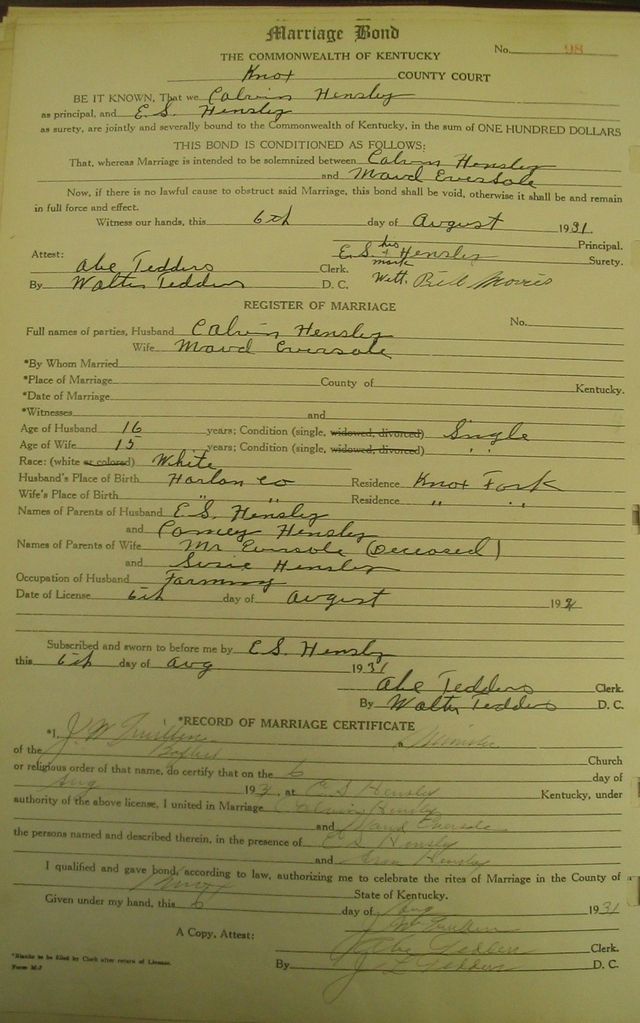 Marriage Bond
No. 98
THE COMMONWEALTH OF KENTUCKY
Knox COUNTY COURT
BE IT KNOWN, That we Calvin Hensley
as principal, and E. S. Hensley
as surety, are jointly and severally bound to the Commonwealth of Kentucky, in the sum of ONE HUNDRED DOLLARS
THIS BOND IS CONDITIONED AS FOLLOWS:
That, whereas Marriage is intended to be solemnized between Calvin Hensley
and Maud Eversole
Now, if there is no lawful cause to obstruct said Marriage, this bond shall be void, otherwise it shall be and remain
in full force and effect.
Witness our hands, this 6th day of August 1931.
Principal.
Attest: E. S. his x mark Hensley Surety.
Abe Tedders Clerk. Witt. Bill Morris
By Walter Tedders D. C.
REGISTER OF MARRIAGE
Full names of parties, Husband Calvin Hensley No.
Wife Maud Eversole
*By Whom Married
*Place of Marriage County of Kentucky.
*Date of Marriage
*Witnesses and
Age of Husband 16 years; Condition (single, widowed, divorced) Single
Age of Wife 15 years; Condition (single, widowed, divorced) " "
Race: (white or colored) White
Husband's Place of Birth Harlan Co Residence Knox Fork
Wife's Place of Birth " " Residence " "
Names of Parents of Husband E. S. Hensley
and Hensley
Names of Parents of Wife Mr Eversole (Deceased)
and Susie Hensley
Occupation of Husband Farming
Date of License 6th day of August 193
Subscribed and sworn to before me by E. S. Hensley
this 6th day of Aug 1931
Abe Tedders Clerk.
By Walter Tedders D. C.
*RECORD OF MARRIAGE CERTIFICATE
*I, J. W. a Minister
of the Baptist Church
or religious order of that name, do certify that on the 6 day of
Aug 193, at E S Hensley Kentucky, under
authority of the above license, I united in Marriage Calvin Hensley
and Maud Eversole
the persons named and described therein, in the presence of E S Hensley
and Hensley
I qualified and gave bond, according to law, authorizing me to celebrate the rites of Marriage in the County of
Knox State of Kentucky.
Given under my hand, this 6 day of Aug 1931
J W
A Copy, Attest: Abe Tedders Clerk.
By J L Tedders D. C.
*Blanks to be filed by Clerk after return of License.
Form M-7